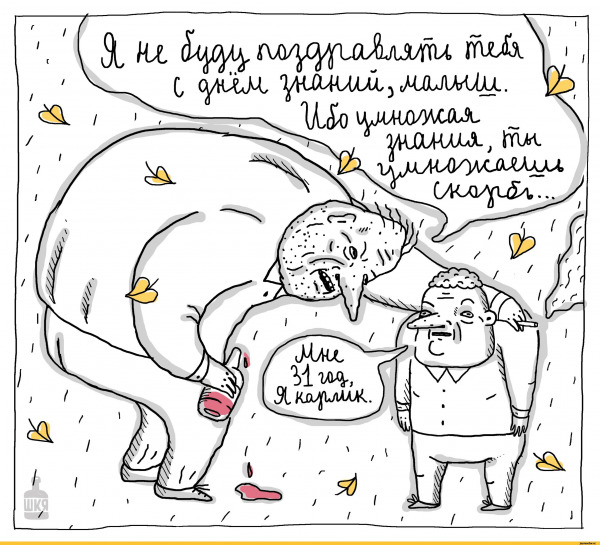 Я не буду поздравлять тебя
с днём знаний, малыш.
Ибо умножая
знания, ты
умножаешь
скорбь...
Мне
31 год,
Я карлик.
ШКЯ